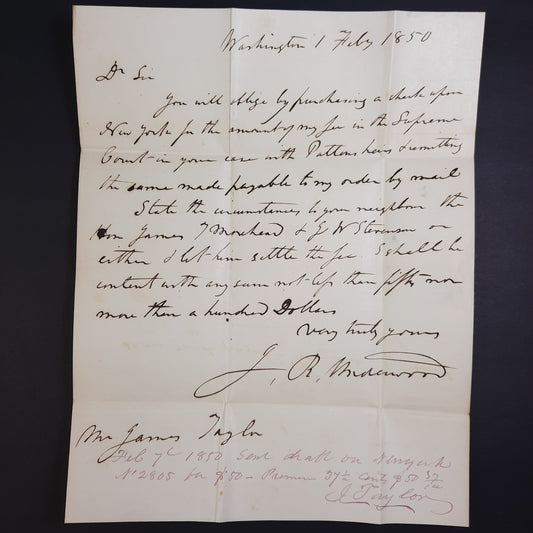 Washington 1 Feby 1850
Dr Sir
You will oblige by purchasing a check upon
New York for the amount of my fee in the Supreme
Court in your case with Pattons heirs & remitting
the same made payable to my order by mail
State the circumstances to your neighbour the
Hon James T Morehead & J W Stevenson or
either & let him settle the fee. I shall be
content with any sum not less than fifty nor
more than a hundred Dollars
very truly yours
J. R. Underwood
Mr James Taylor
Feb 7th 1850 Sent draft on Newyork
No 2805 for $50 – Premium 37½ cents $50 37/100
J Taylor